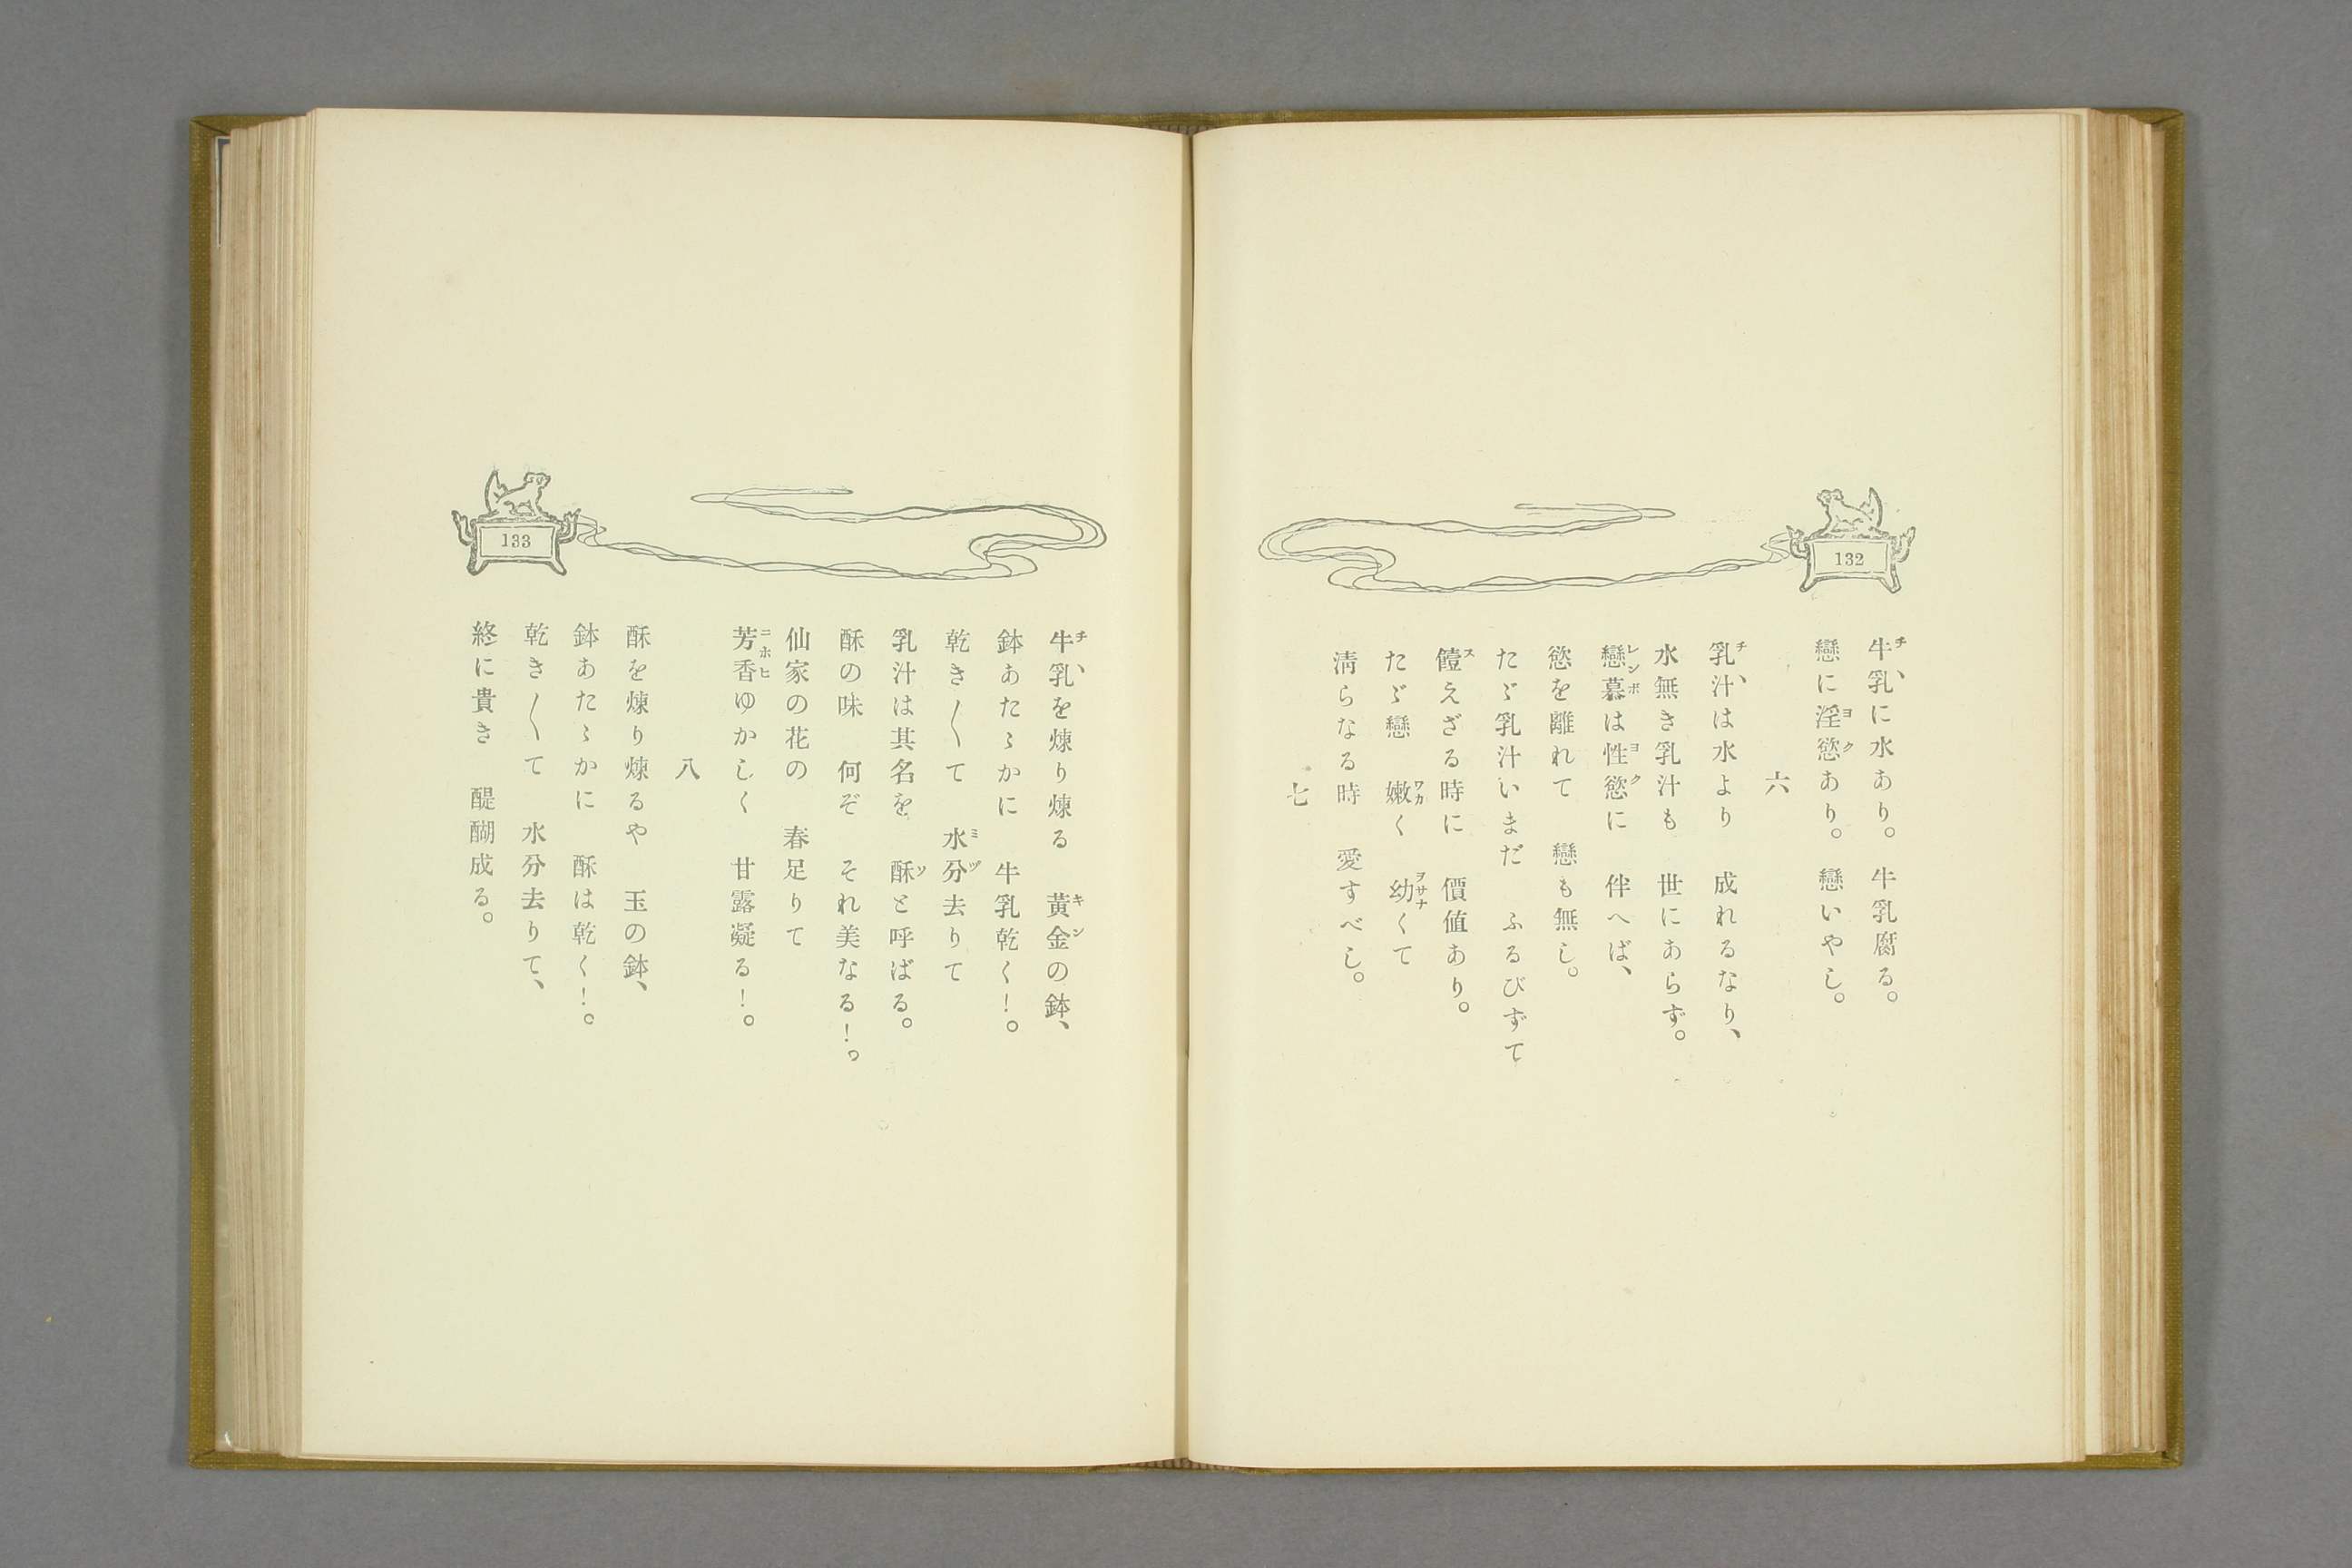 132
牛乳、に水あり。牛乳腐る。
戀に淫慾あり。戀いやし。
六
乳汁、は水より　成れるなり、
水無き乳汁も　世にあらず。
戀慕は性慾に　伴へば、
慾を離れて　戀も無し。
たゞ乳汁いまだ　ふるびずて
饐えざる時に　價値あり。
たゞ戀　嫩く　幼くて
淸らなる時　愛すべし。
七
133
牛乳、を煉り煉る　黃金の鉢、
鉢あたゝかに　牛乳乾く！。
乾き〳〵て　水分去りて
乳汁は其名を　酥と呼ばる。
酥の味　何ぞ　それ美なる！。
仙家の花の　春足りて
芳香ゆかしく　甘露凝る！。
八
酥を煉り煉るや　玉の鉢、
鉢あたゝかに　酥は乾く！。
乾き〳〵て　水分去りて、
終に貴き　醍醐成る。